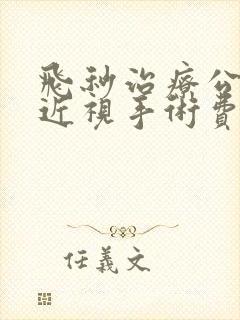 飛秒治療公
近視手術費
任義文